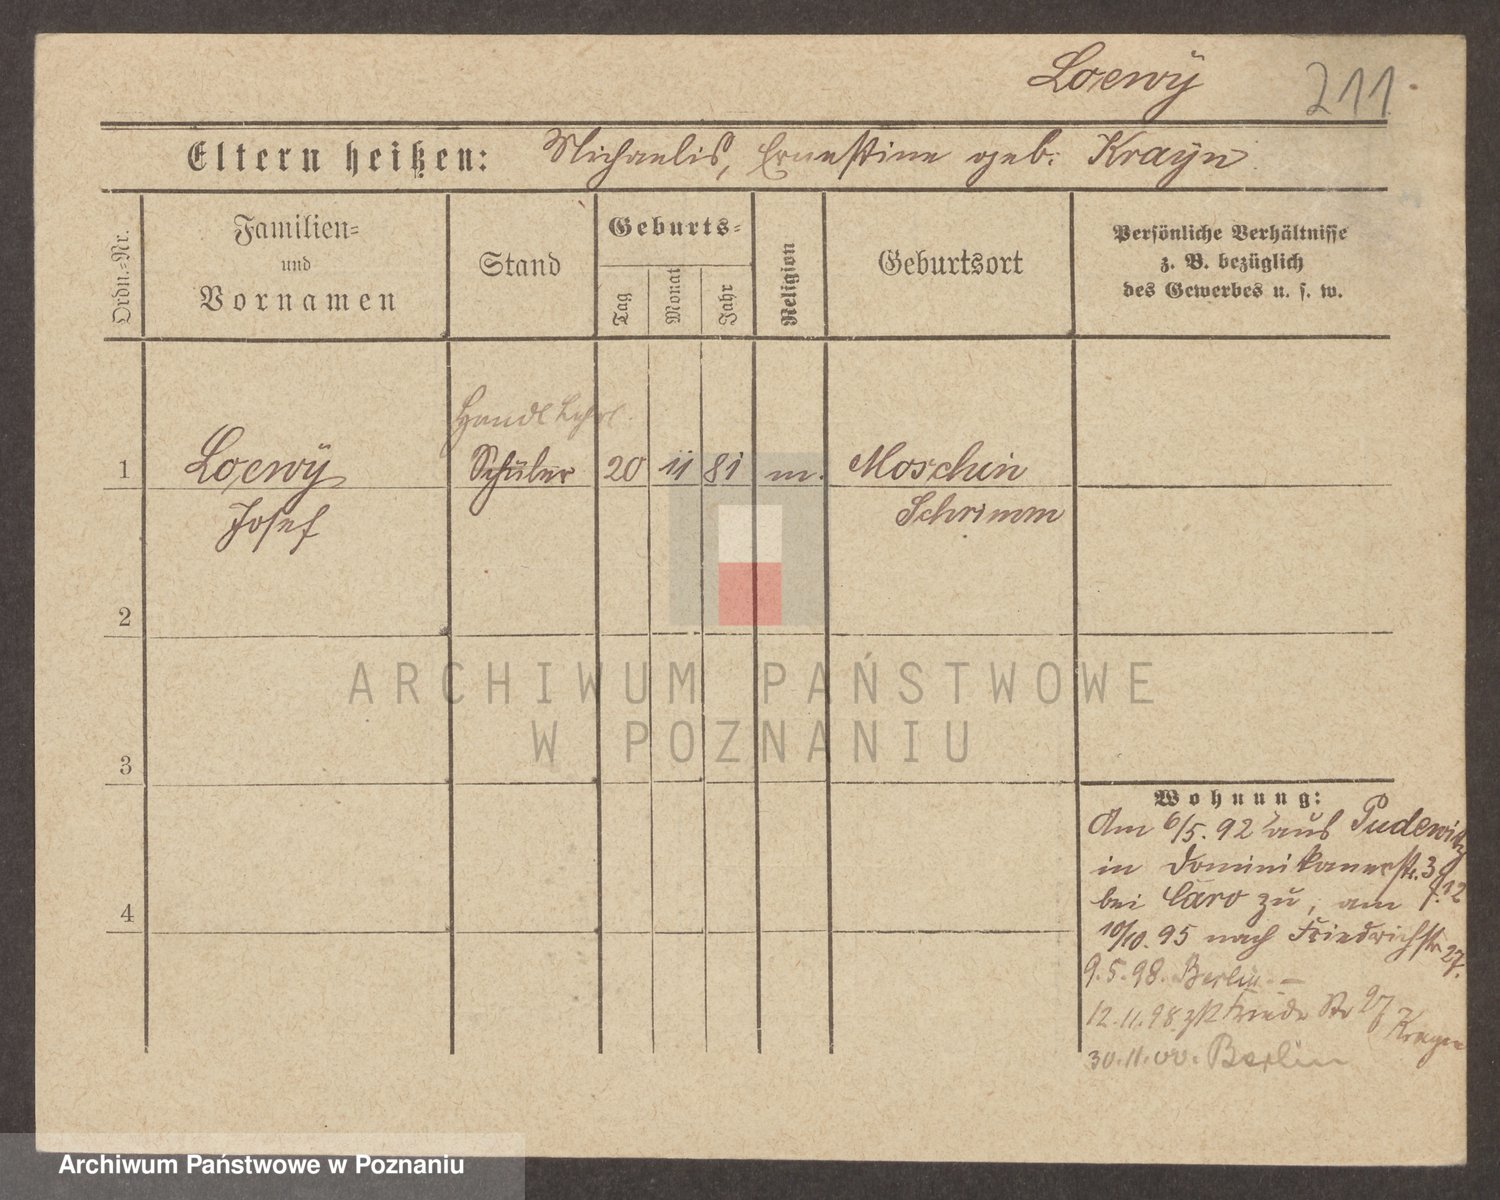 Loewÿ
211.
Eltern heißen: Michaelis, Ernestine geb. Krayn
Ordn.-Nr.
Familien-
und
Vornamen
Stand
Geburts-
Tag
Monat
Jahr
Religion
Geburtsort
Persönliche Verhältnisse
z. B. bezüglich
des Gewerbes u. s. w.
Handl. Lehrl.
1 Loewÿ Schüler 20 11 81 m. Moschin
Josef Schrimm
2
3
4
Wohnung:
Am 6/5. 92 aus Pudewitz
in Dominikanerstr. 3
bei Caro zu, am
10/10. 95 nach Friedrichstr 27.
9.5.98. Berlin –
12.11.98. Friedr Str 27
Krayn
30.11.00. Berlin
ARCHIWUM PAŃSTWOWE
W POZNANIU
Archiwum Państwowe w Poznaniu